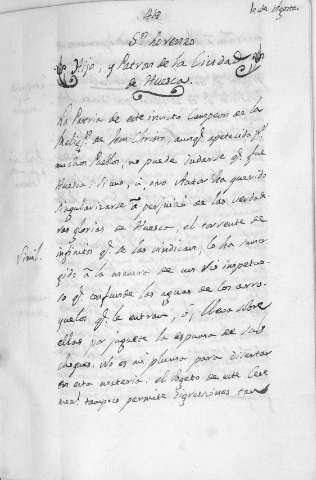 10 de Agosto.
Sn. Lorenzo
Hijo, y Patron de la Ciudad
de Huesca.
La Patria de este invicto Campeon de la
Relign. de Jem Christo, aunqe. apetecida pr.
muchos Pueblos, no puede dudarse qe. fue
Huesca: Si uno, ú otro Autor ha querido
singularizarse á perjuicio de las verdade
ras glorias de Huesca, el torrente de
infinitos qe. las vindican, lo ha sumer
gido á la manera de un rio impetuo
Simil.
so qe. confunde las aguas de los arro
yuelos qe. le entran, ó, lleva sobre
ellas por juguete la espuma de sus
choques. No es mi pluma para disertar
en esta materia: el objeto de este
tampoco permite digresiones tan